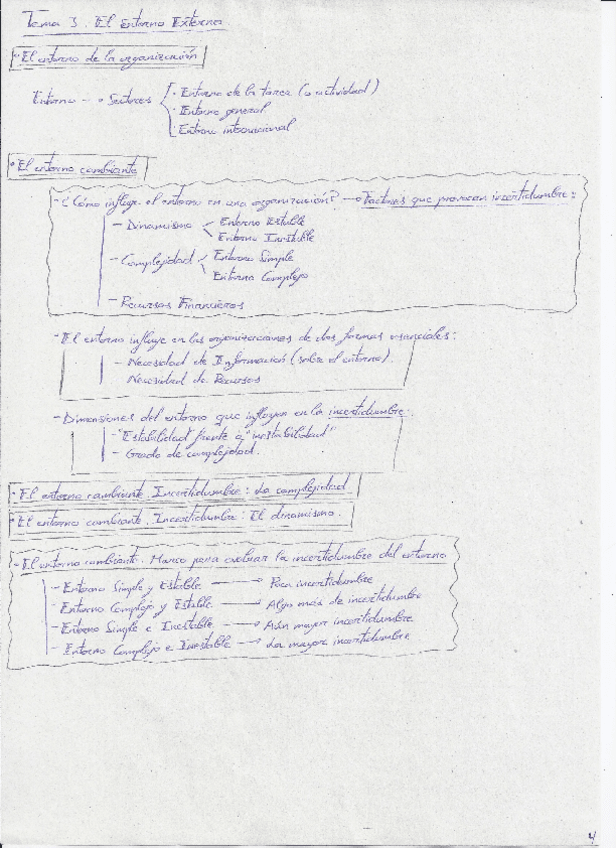 Tema 3. El entorno Externo
· El entorno de la organización
Entorno → Sectores
· Entorno de la tarea (o actividad)
· Entorno general
· Entorno internacional
· El entorno cambiante
- ¿Cómo influye el entorno en una organización? → Factores que provocan incertidumbre:
- Dinamismo
Entorno Estable
Entorno Inestable
- Complejidad
Entorno Simple
Entorno Complejo
- Recursos Financieros
- El entorno influye en las organizaciones de dos formas esenciales:
- Necesidad de Información (sobre el entorno).
Necesidad de Recursos
- Dimensiones del entorno que influyen en la incertidumbre:
- "Estabilidad frente a "inestabilidad"
- Grado de complejidad.
· El entorno cambiante. Incertidumbre: La complejidad
· El entorno cambiante. Incertidumbre: El dinamismo.
- El entorno cambiante: Marco para evaluar la incertidumbre del entorno
- Entorno Simple y Estable → Poca incertidumbre
- Entorno Complejo y Estable → Algo más de incertidumbre
- Entorno Simple e Inestable → Aún mayor incertidumbre
- Entorno Complejo e Inestable → La mayor incertidumbre
4